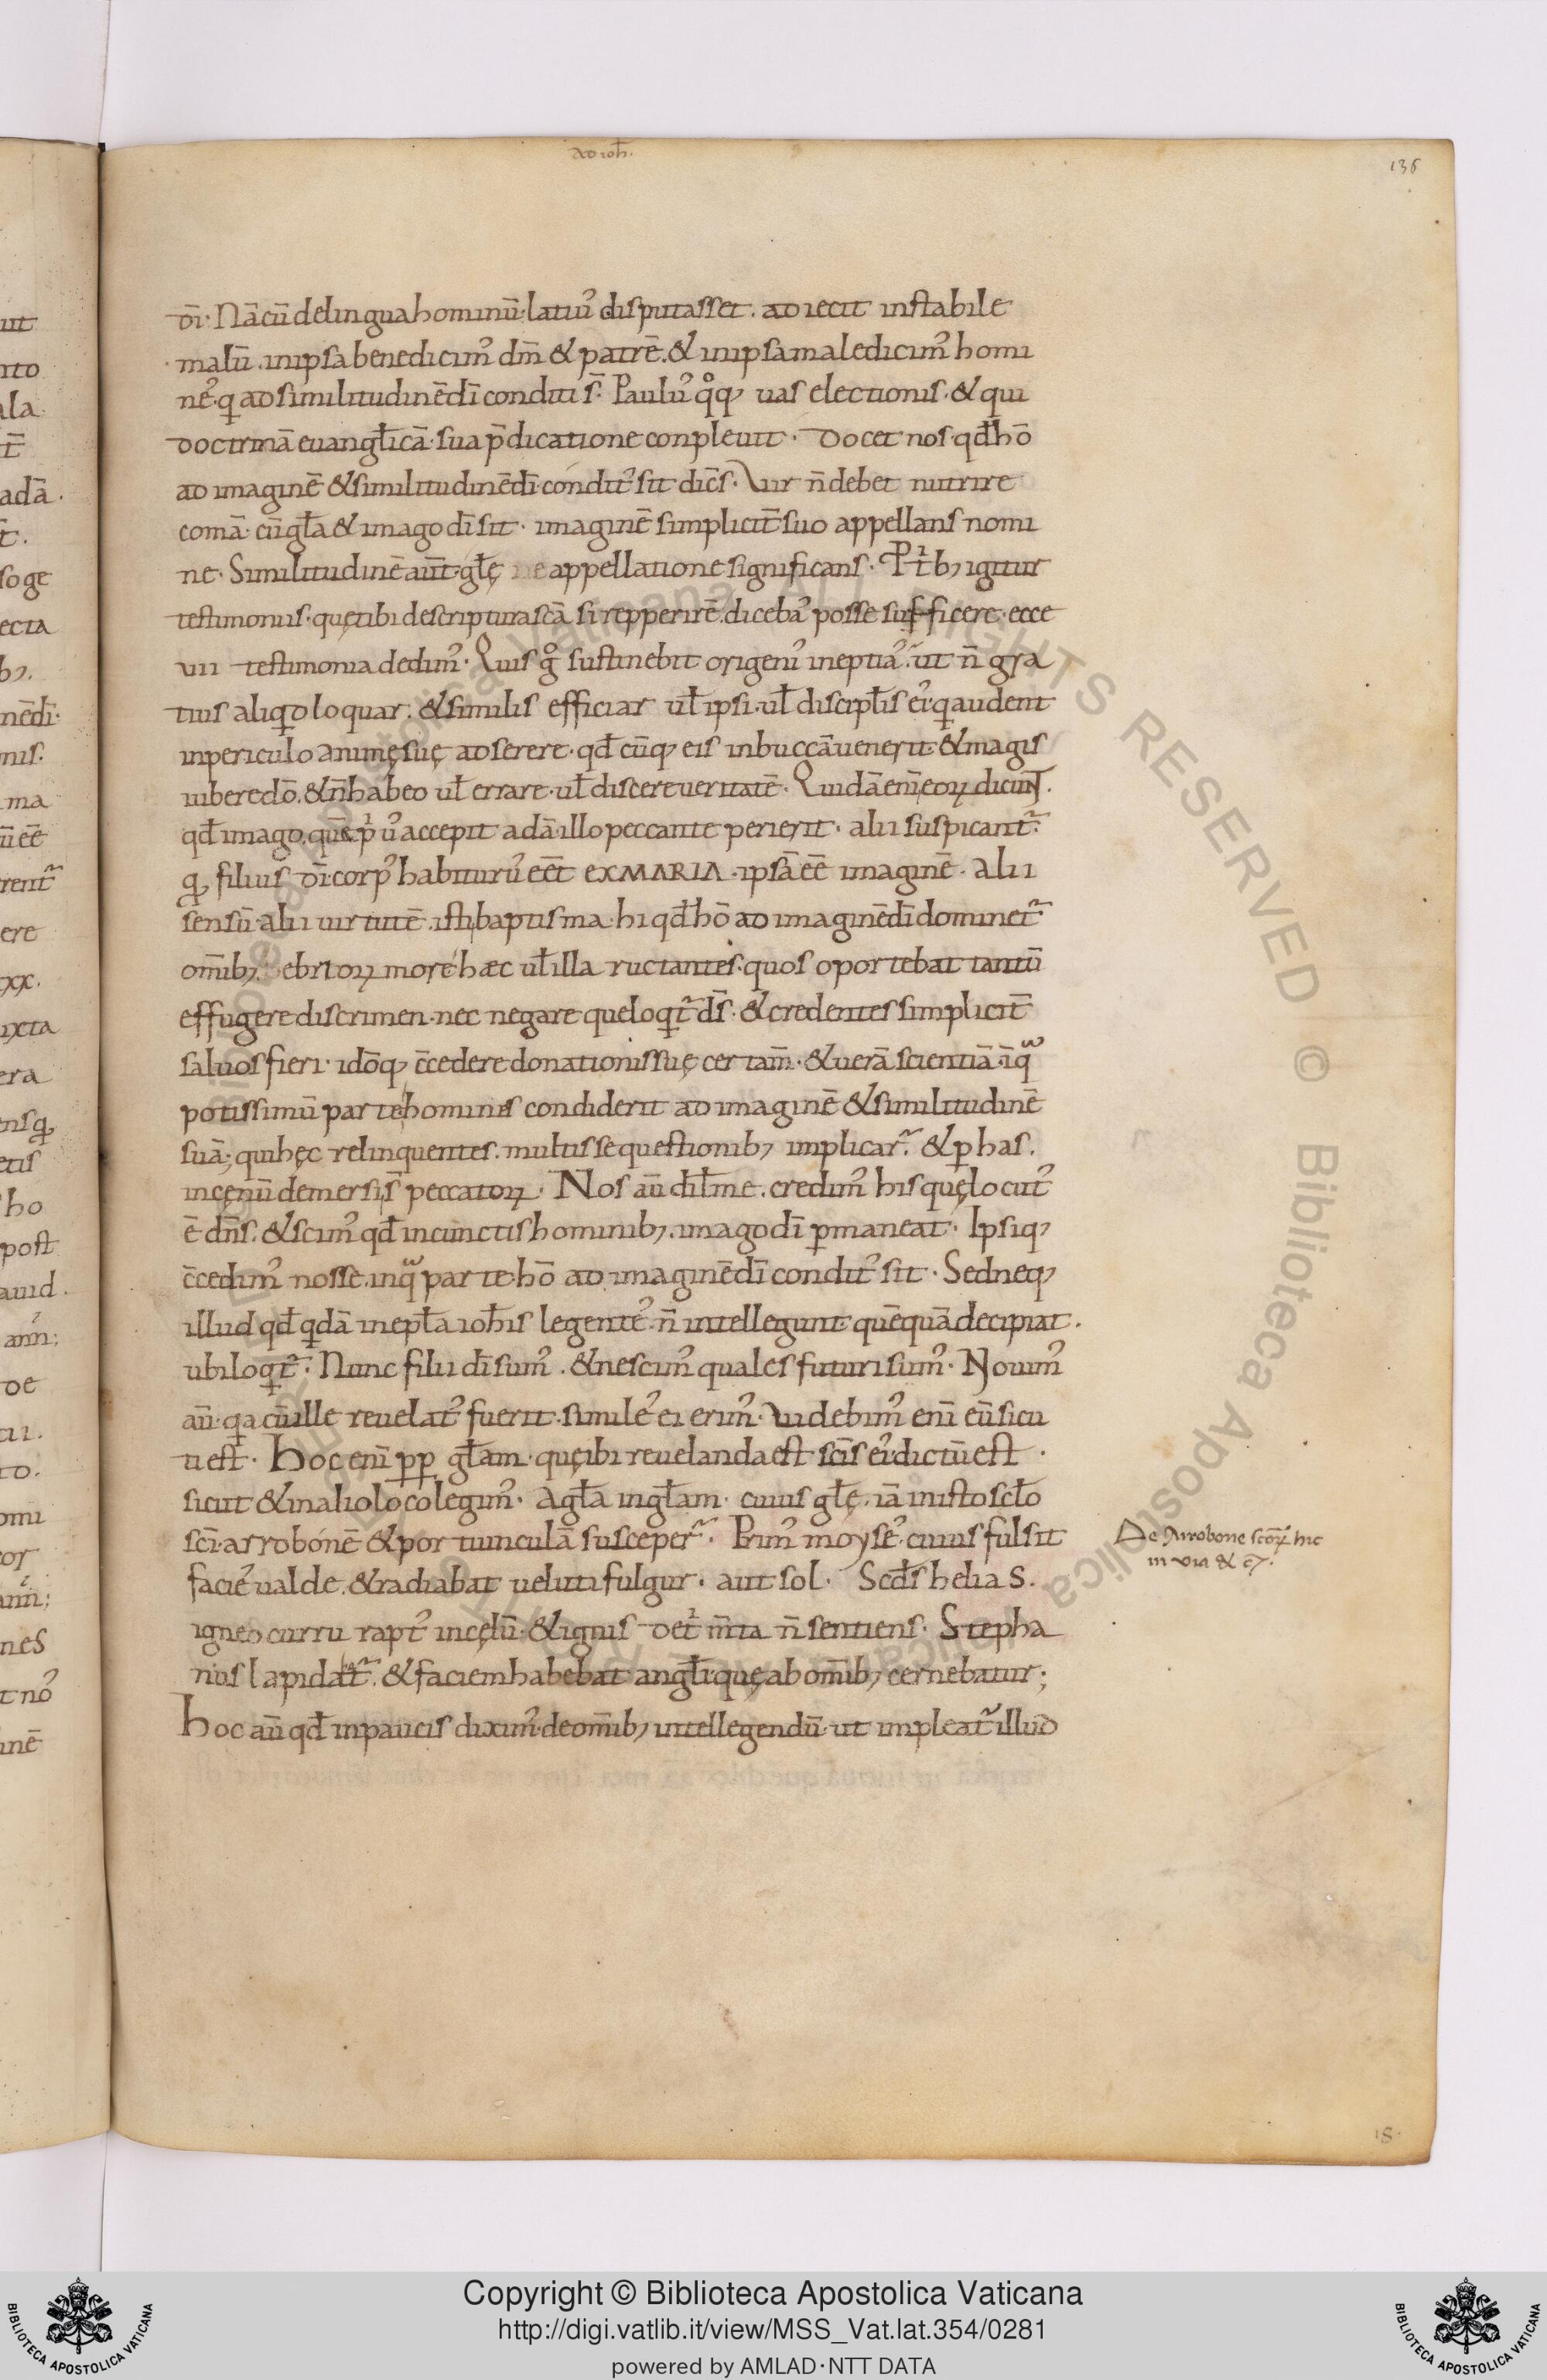 ad ioh̄.
136
dī· Nā cū de lingua hominū· latiuꝰ disputasset. adiecit instabile
malū. in ipsa benedicimꝰ dm̄ & patrē. & in ipsa maledicimꝰ homi
neꝰ· q ad similitudinē dī conditi s̄. Pauluꝰ qͦqꝫ uas electionis. & qui
doctrinā euangl̄icā· sua p̄dicatione conpleuit. docet nos· qđ hō
ad imaginē & similitudinē dī conditꝰ sit dic̄s· Vir n̄ debet nutrire
comā· cū gl̄a & imago dī sit· imaginē simplicit̄ suo appellans nomi
ne· Similitudinē aūt gl̄ę appellatione significans·  igitur
testimoniis· quę tibi de scriptura scā si repperirē. dicebaꝰ posse sufficere· ecce
uii testimonia dedimꝰ· Quis gͦ sustinebit origeniꝰ ineptiaꝰ. ut n̄ gra
uius aliqd loquar. & similis efficiar ul̄ ipsi· ul̄ discipl̄is eiꝰ· q audent
in periculo animę suę adserere· qđ cūqꝫ eis in buccā uenerit· & magis
iubere dō. & n̄ habeo ul̄ errare· ul̄ discere ueritatē· Quidā enī eoꝝ dicunt.
qđ imago quē pͥuꝰ accepit adā· illo peccante perierit· alii suspicant᷑.
qd filius dī corpꝰ habituruꝰ eēt EX MARIA· ipsā eē imaginē· alii
sensū· alii uirtutē. isti baptisma· hi qđ hō ad imaginē dī dominet᷑
om̄ibꝫ. ebrioꝝ more hæc ul̄ illa ructantes· quos oportebat tantū
effugere discrimen· nec negare que loqt᷑ ds̄· & credentes simplicit̄
saluos fieri· idōqꝫ c̄cedere donationis suę certam̄· & uerā scientiā· ī q
potissimū parte hominis condiderit ad imaginē & similitudinē
suā; qui hęc relinquentes. multis se questionibꝫ implicar᷑. & p has.
in cęnū demersi s̄ peccatoꝝ· Nos aū dil̄me. credimꝰ his quę locutꝰ
ē dn̄s. & scimꝰ qđ in cunctis hominibꝫ. imago dī pmaneat· Ipsiqꝫ
c̄cedimꝰ nosse· in q parte· hō ad imaginē dī conditꝰ sit· Sed neqꝫ
illud qđ qdā in epl̄a ioh̄is legenteꝰ· n̄ intellegunt· quēquā decipiat.
ubi loqt᷑· Nunc filii dī sumꝰ. & nescimꝰ quales futuri sumꝰ· Nouimꝰ
aū· qa cū ille reuelatꝰ fuerit· simileꝰ ei erimꝰ· Videbimꝰ enī eū sicu
ti est· Hoc enī pp gl̄am· quę ibi reuelanda est sc̄is eiꝰ· dictū est·
sicut & in alio loco legimꝰ· A gl̄a in gl̄am· cuius gl̄ę· iā in isto scl̄o
sc̄i· arrobonē & portiunculā susceper᷑. Primꝰ moyseꝰ· cuius fulsit
facieꝰ ualde. & radiabat ueluti fulgur. aut sol. Scd̄s helias.
igneo curru raptꝰ in cęlū· & ignis n̄ sentiens. Stepha
nus lapidat᷑. & faciem habebat angl̄i· quę ab om̄ibꝫ cernebatur;
Hoc aū qđ in paucis diximꝰ· de om̄ibꝫ intellegendū· ut impleat᷑ illud
De Arrobone scōꝝ hic
in via &
18·
BIBLIOTECA APOSTOLICA VATICANA
Copyright © Biblioteca Apostolica Vaticana
http://digi.vatlib.it/view/MSS_Vat.lat.354/0281
powered by AMLAD·NTT DATA
BIBLIOTECA APOSTOLICA VATICANA